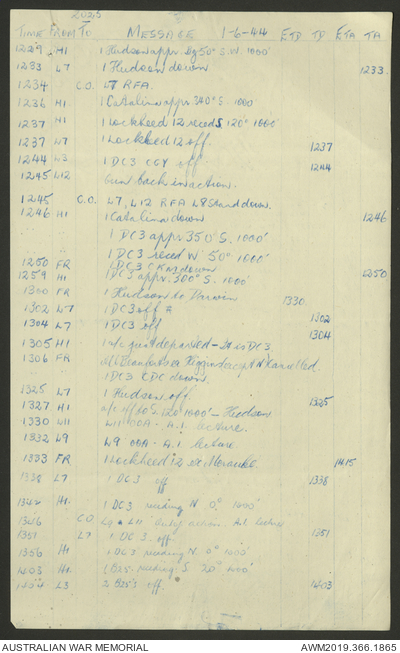 TIME FROM TO MESSAGE 1-6-44 ETD TD ETA TA
1229 H1 1 Hudson appr. 50° S.W. 1000'
1233 L7 1 Hudson down 1233
1234 C.O. L7 RFA.
1236 H1 1 Catalina appr. 340° S. 1000
1237 H1 1 Lockheed 12 reced S 120° 1000'
1237 L7 1 Lockheed 12 off. 1237
1244 L3 1 DC3 CGX off 1244
1245 L12 Gun back in action.
1245 C.O. L7, L12 RFA L8 Stand down.
1246 H1 1 Catalina down 1246
1 DC3 appr. 350° S. 1000'
1 DC3 reced W 50° 1000'
1250 FR 1 DC3 down 1250
1259 H1 1 DC3 appr. 300° S. 1000'
1300 FR 1 Hudson to Darwin 1330
1302 L7 1 DC3 off 1302
1304 L7 1 DC3 off 1304
1305 H1 a/c just departed - is DC3.
1306 FR Higgins cancelled.
1 DC3 CDC down.
1325 L7 1 Hudson off 1325
1327 H1 a/c off 60° S. 120° 1000' - Hudson
1330 L11 L11 OOA - A.1 lecture.
1332 L9 L9 OOA - A.1 lecture
1333 FR 1 Lockheed 12 ex Merauke. 1415
1338 L7 1 DC3 off 1338
H1 1 DC3 N. 0° 1000'
1346 C.O. L9 & L11
1351 L7 1 DC3 off 1351
1356 H1 1 DC3 N 0° 1000'
1403 H1 B25 S. 20° 1000'
1404 L3 2 B25's off. 1403
AUSTRALIAN WAR MEMORIAL AWM2019.366.1865